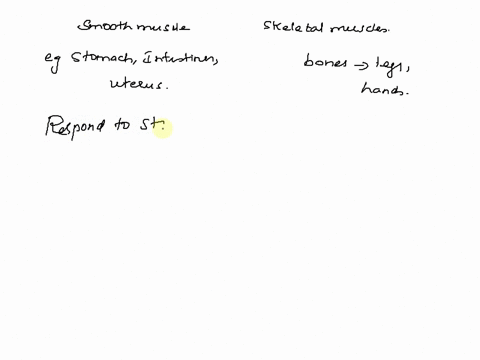 Smooth muscle
Skeletal muscles.
eg Stomach, Intestines,
uterus.
bones → legs,
hands.
Respond to st.